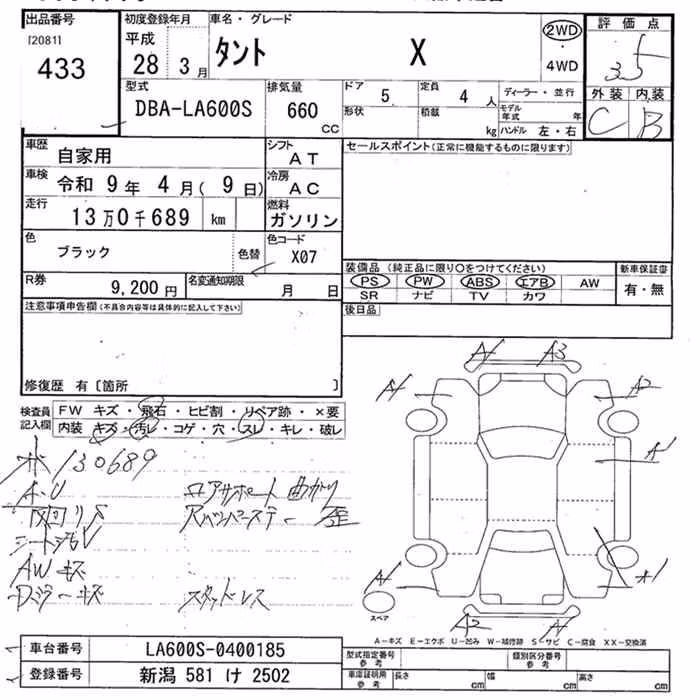 出品番号
[20811]
433
初度登録年月
平成
28 3 月
車名・グレード
タント X
2WD
・
4WD
評価点
3.5
外装 内装
C B
型式
DBA-LA600S
排気量
660
cc
ドア 5
定員 4 人
ディーラー・並行
形状
積載 kg
モデル年式 年
ハンドル 左・右
車歴
自家用
シフト
AT
車検
令和 9 年 4 月( 9 日)
冷房
AC
走行
13 万 0 千 689 km
燃料
ガソリン
色
ブラック
色替
色コード
X07
R券
9,200 円
名変通知期限
月 日
セールスポイント(正常に機能するものに限ります)
装備品(純正品に限り○をつけてください)
PS PW ABS エアB AW
SR ナビ TV カワ
新車保証書
有・無
後日品
注意事項申告欄(不具合内容等は具体的に記入して下さい)
修復歴 有〔箇所 〕
検査員
記入欄
FW キズ・飛石・ヒビ割・リペア跡・×要
内装 キズ・汚レ・コゲ・穴・スレ・キレ・破レ
130689
A・U
ロアサポート曲がり
シート汚レ
AWキズ
スタッドレス
A1 A3
A1 A2
A1
A1 A1
A2 A1
スペア
A-キズ E-エクボ U-凹み W-補修跡 S-サビ C-腐食 XX-交換済
車台番号
LA600S-0400185
登録番号
新潟 581 け 2502
型式指定番号
参考
類別区分番号
参考
車庫証明用
参考
長さ cm
幅 cm
高さ cm